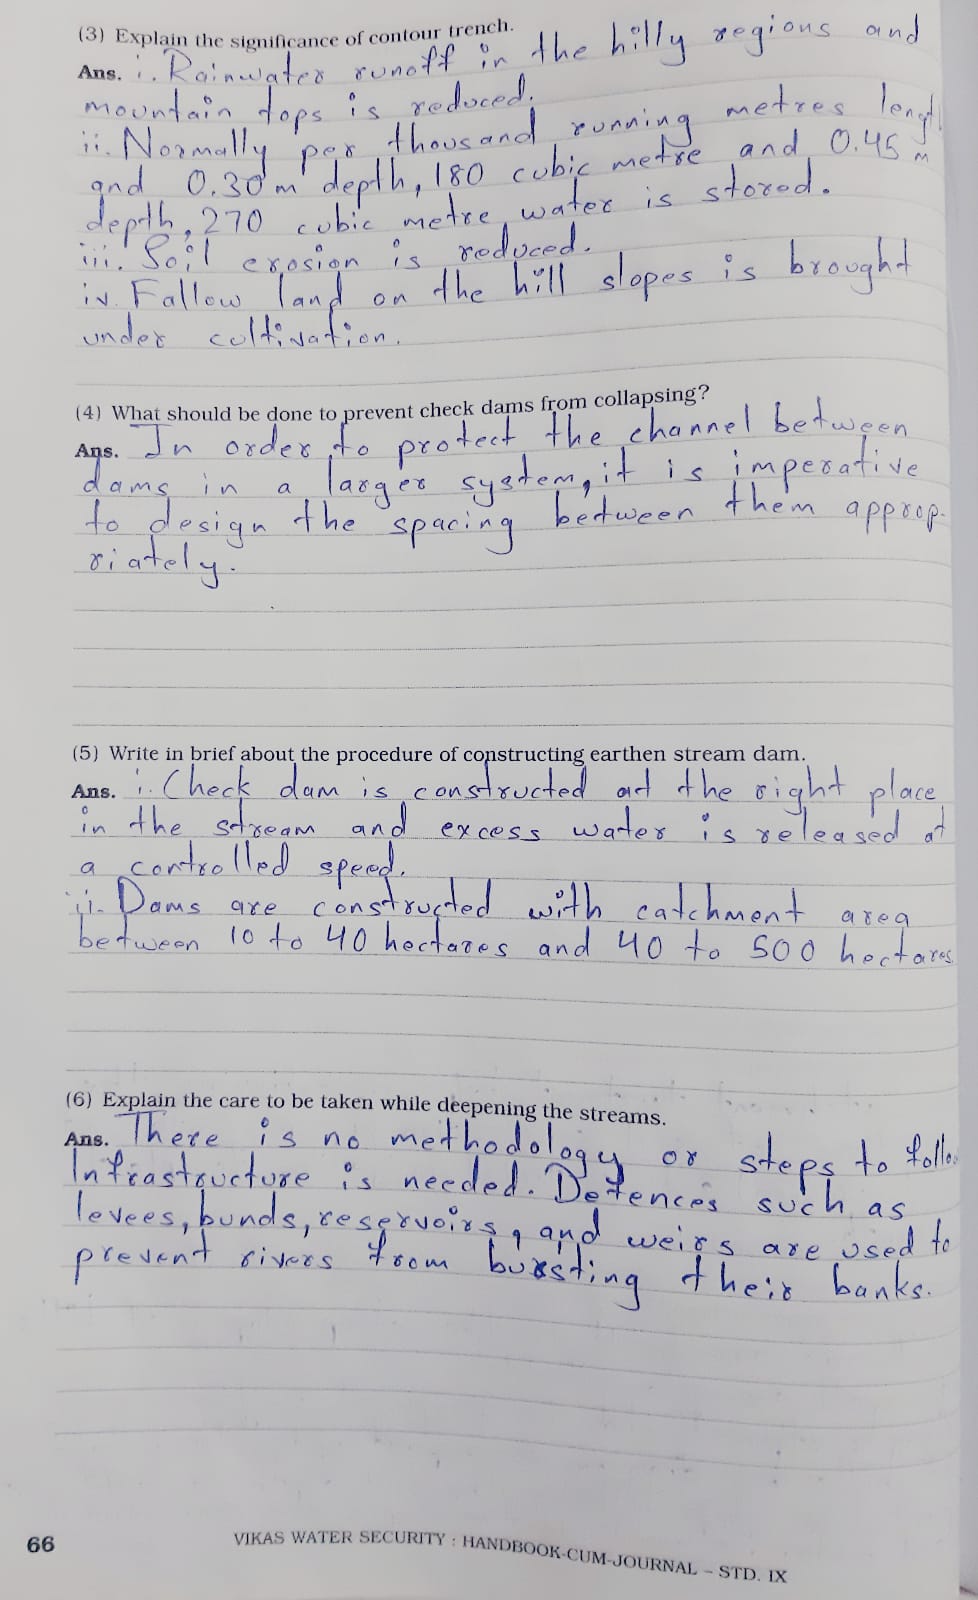 (3) Explain the significance of contour trench.
Ans. i. Rainwater runoff in the hilly regions and
mountain tops is reduced.
ii. Normally per thousand running metres length
and 0.30 m depth, 180 cubic metre and 0.45 m
depth, 270 cubic metre water is stored.
iii. Soil erosion is reduced.
iv. Fallow land on the hill slopes is brought
under cultivation.
(4) What should be done to prevent check dams from collapsing?
Ans. In order to protect the channel between
dams in a larger system, it is imperative
to design the spacing between them approp-
riately.
(5) Write in brief about the procedure of constructing earthen stream dam.
Ans. i. Check dam is constructed at the right place
in the stream and excess water is released at
a controlled speed.
ii. Dams are constructed with catchment area
between 10 to 40 hectares and 40 to 500 hectares.
(6) Explain the care to be taken while deepening the streams.
Ans. There is no methodology or steps to follow
Infrastructure is needed. Defences such as
levees, bunds, reservoirs, and weirs are used to
prevent rivers from bursting their banks.
66
VIKAS WATER SECURITY : HANDBOOK-CUM-JOURNAL – STD. IX